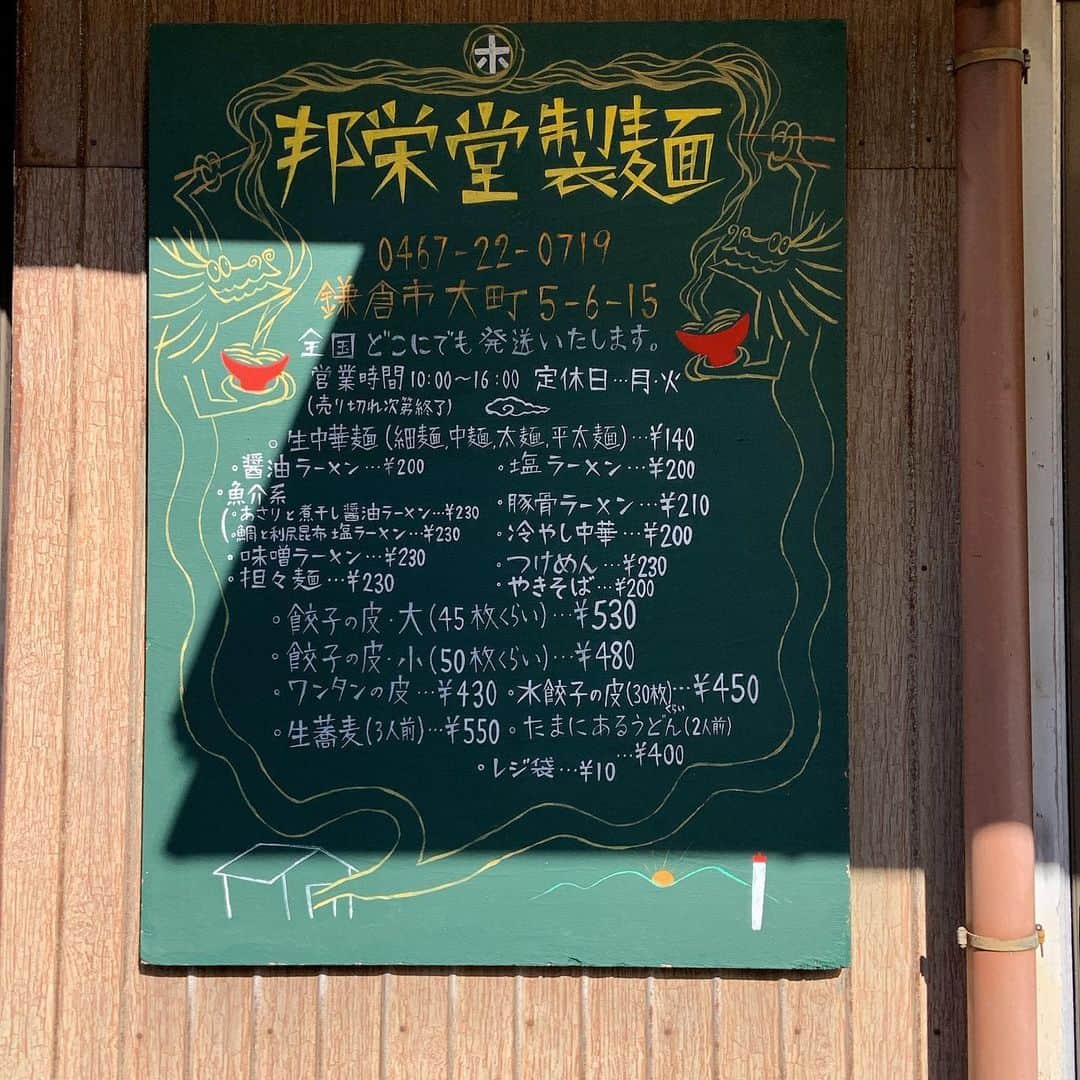 ホ
邦栄堂製麺
0467-22-0719
鎌倉市大町5-6-15
全国どこにでも発送いたします。
営業時間10:00〜16:00 定休日…月・火
(売り切れ次第終了)
◦生中華麺(細麺,中麺,太麺,平太麺)…¥140
◦醤油ラーメン…¥200 ◦塩ラーメン…¥200
◦魚介系
◦あさりと煮干し醤油ラーメン…¥230 ◦豚骨ラーメン…¥210
◦鯛と利尻昆布塩ラーメン…¥230 ◦冷やし中華…¥200
◦味噌ラーメン…¥230 ◦つけめん…¥230
◦担々麺…¥230 ◦やきそば…¥200
◦餃子の皮・大(45枚くらい)…¥530
◦餃子の皮・小(50枚くらい)…¥480
◦ワンタンの皮…¥430 ◦水餃子の皮(30枚くらい)…¥450
◦生蕎麦(3人前)…¥550 ◦たまにあるうどん(2人前)
…¥400
◦レジ袋…¥10